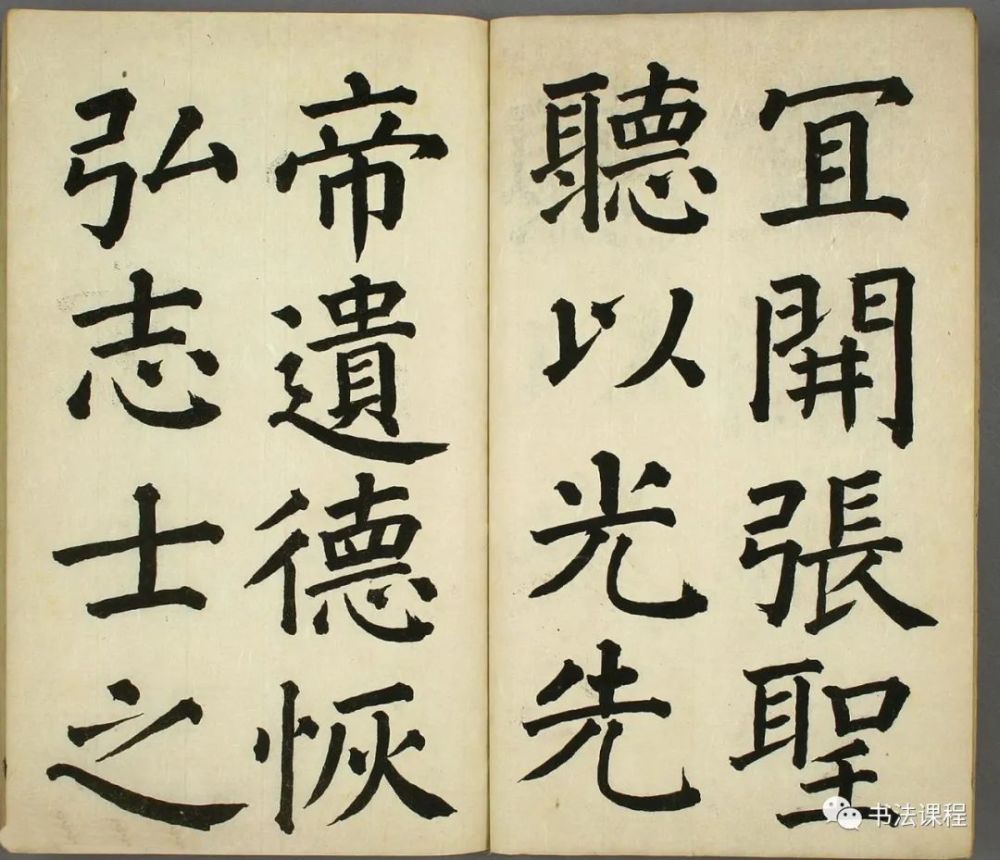 冝開張聖
聽以光先
帝遺德恢
弘志士之
书法课程